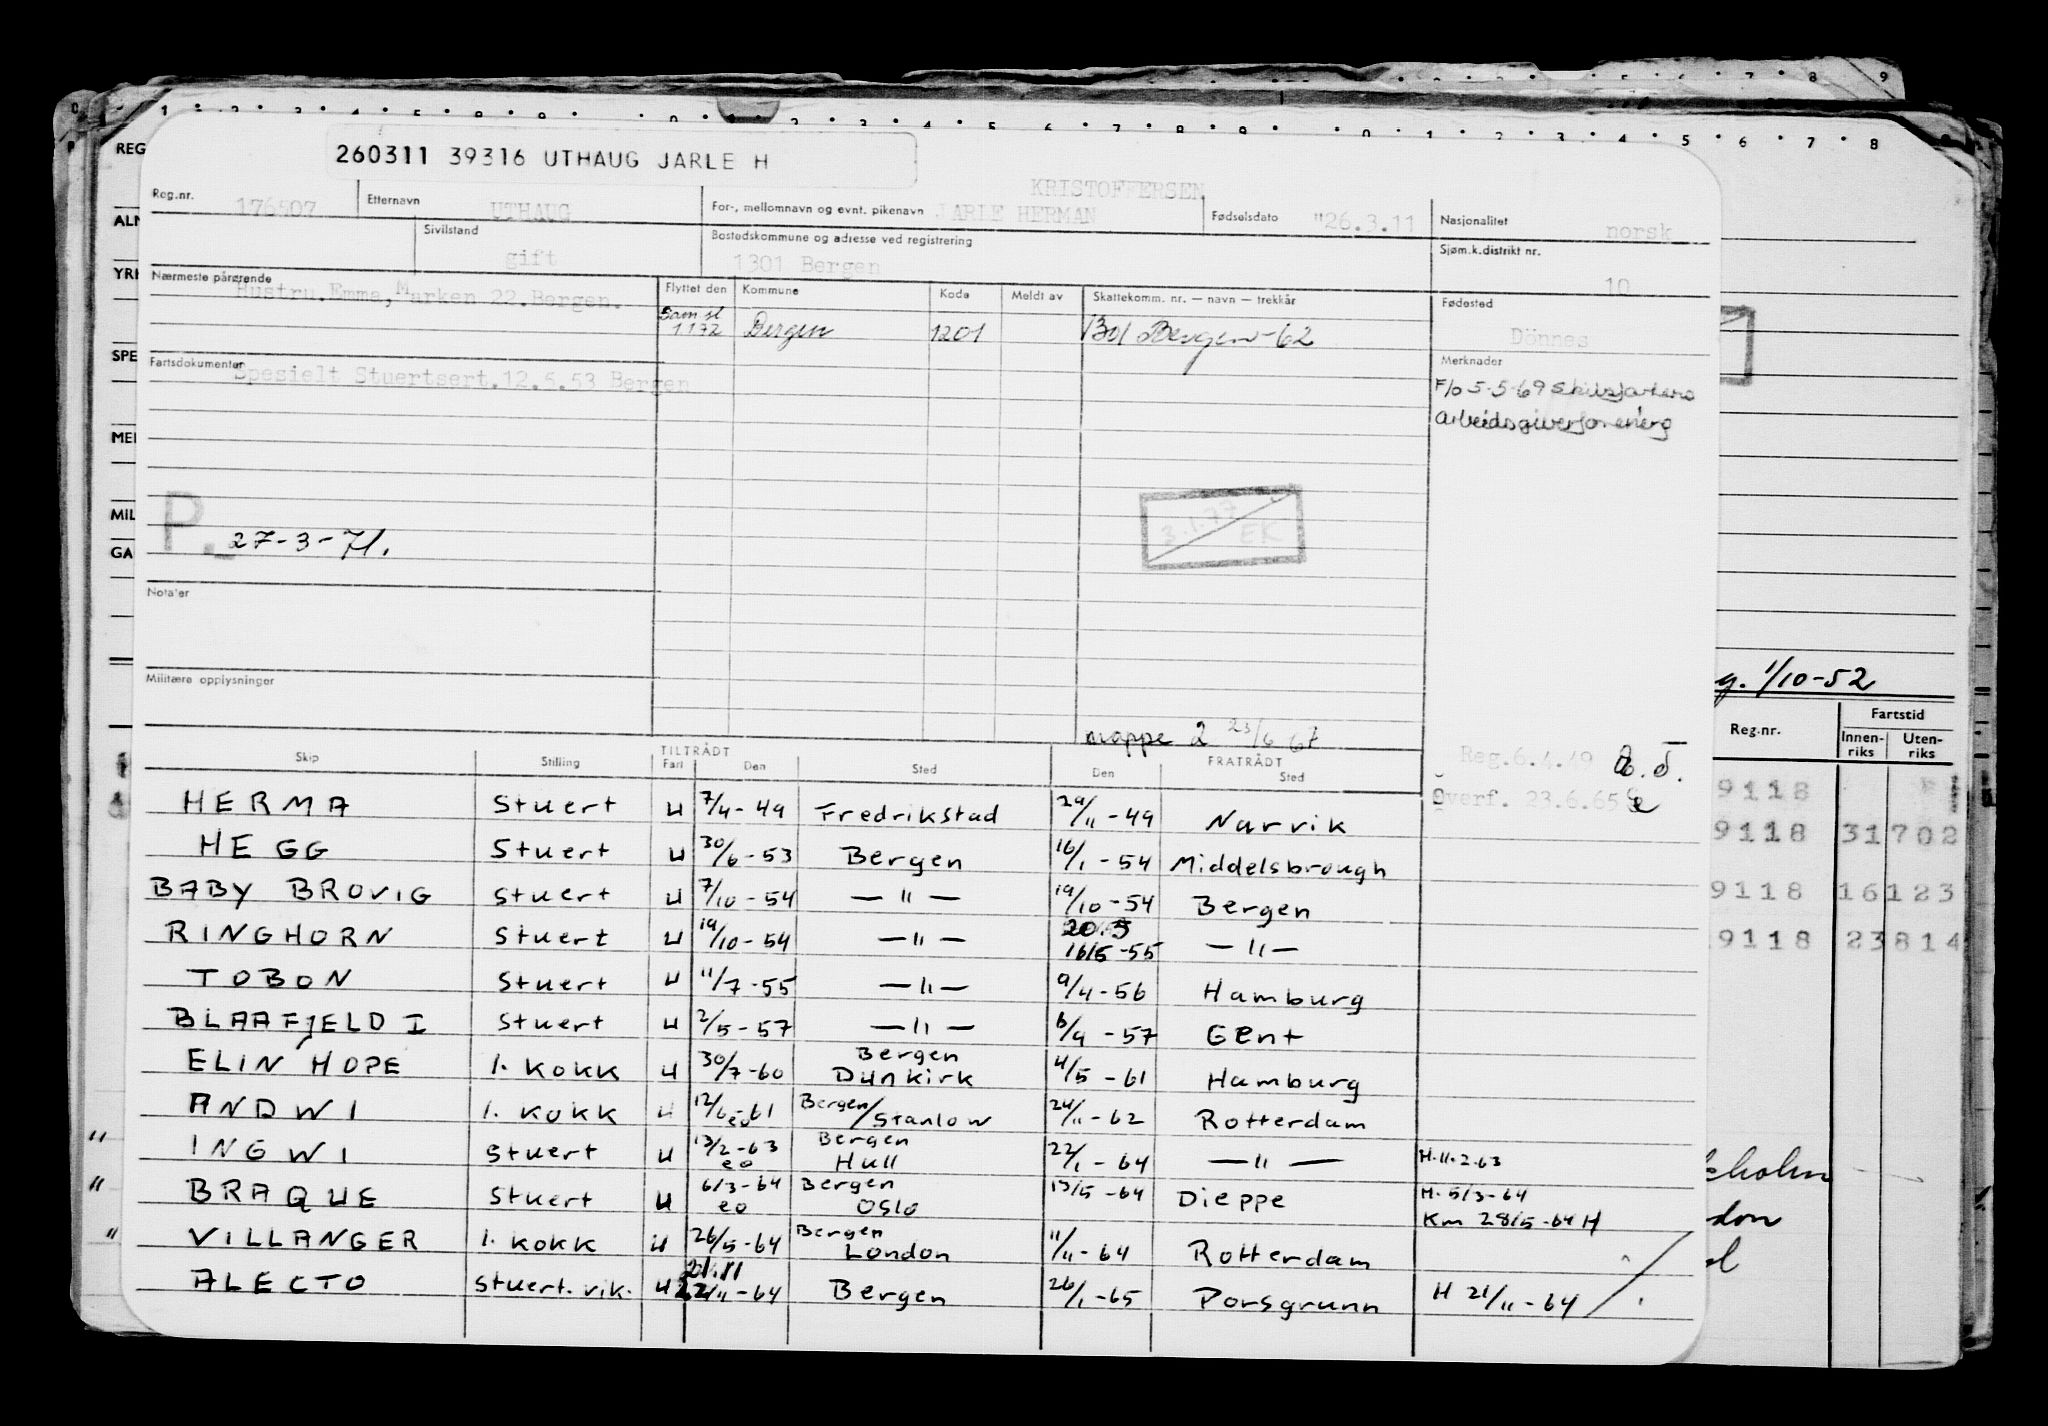 260311 39316 UTHAUG JARLE H
Reg.nr. 176507 Etternavn UTHAUG For-, mellomnavn og evnt. pikenavn KRISTOFFERSEN JARLE HERMAN Fødselsdato "26.3.11 Nasjonalitet norsk
Sivilstand gift Bostedskommune og adresse ved registrering 1301 Bergen Sjøm.k.distrikt nr. 10
Nærmeste pårørende Hustru.Emma, Marken 22.Bergen. Flyttet den Kommune Kode Meldt av Skattekomm. nr. — navn — trekkår Fødested Dönnes
Sam sl 1172 Bergen 1201 1301 Bergen -62
Fartsdokumenter Spesielt Stuertsert.12.5.53 Bergen
Merknader
F/o 5-5-69 Skipsfartens
Arbeidsgiverforening
P. 27-3-71.
3.1.77 EK
Notater
Militære opplysninger
mappe 2 23/6 67
Skip Stilling TILTRÅDT Fart Den Sted FRATRÅDT Den Sted Reg.6.4.49
HERMA Stuert U 7/4-49 Fredrikstad 29/11-49 Narvik Överf. 23.6.65
HEGG Stuert U 30/6-53 Bergen 16/1-54 Middelsbrough
BABY BROVIG Stuert U 7/10-54 — " — 19/10-54 Bergen
RINGHORN Stuert U 19/10-54 — " — 20.5 16/5-55 — " —
TOBON Stuert U 11/7-55 — " — 9/4-56 Hamburg
BLAAFJELD I Stuert U 2/5-57 — " — 6/9-57 GEnt
ELIN HOPE 1. KOKK U 30/7-60 Bergen Dunkirk 4/5-61 Hamburg
ANDWI 1. KOKK U 12/6-61 eo Bergen/Stanlow 24/11-62 Rotterdam
" INGWI Stuert U 13/2-63 eo Bergen Hull 22/1-64 — " — H.11.2.63
" BRAQUE Stuert U 6/3-64 eo Bergen Oslo 13/5-64 Dieppe H.5/3-64
Km 28/5-64 H
" VILLANGER 1. KOKK U 26/5-64 Bergen London 11/11-64 Rotterdam
ALECTO Stuert.vik. U 21.11 22/11-64 Bergen 26/1-65 Porsgrunn H 21/11-64
REG
ALN
YRK
SPE
MEI
MIL
GA
g. 1/10-52
Reg.nr. Fartstid
Innen-riks Uten-riks
9118
9118 31702
9118 16123
9118 23814